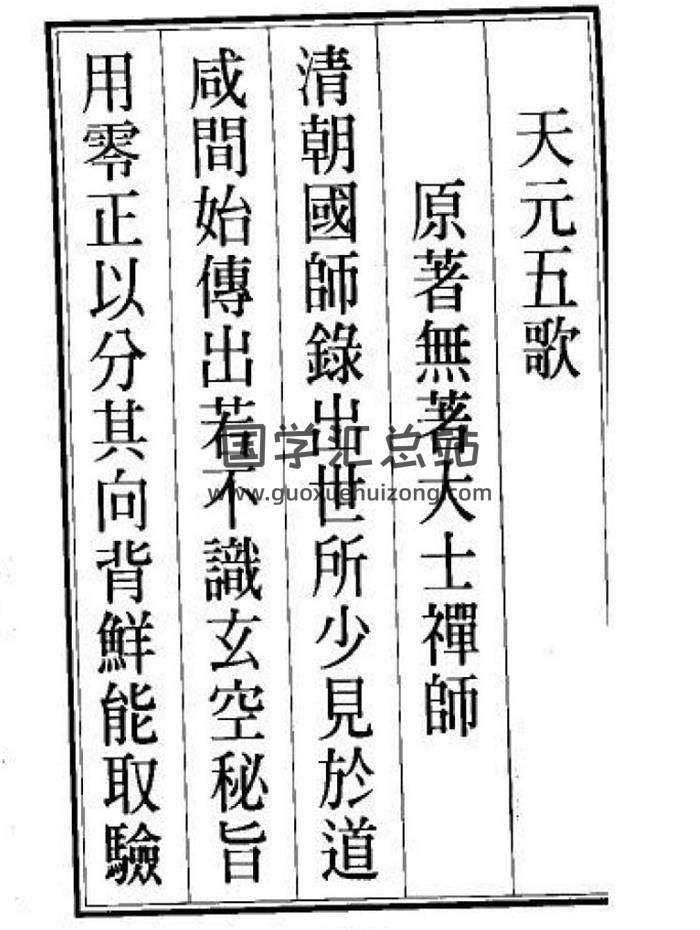 天元五歌
原著無著大士禪師
清朝國師錄出世所少見於道
咸間始傳出若不識玄空秘旨
用零正以分其向背鮮能取驗
国学汇总站
www.guoxuehuizong.com